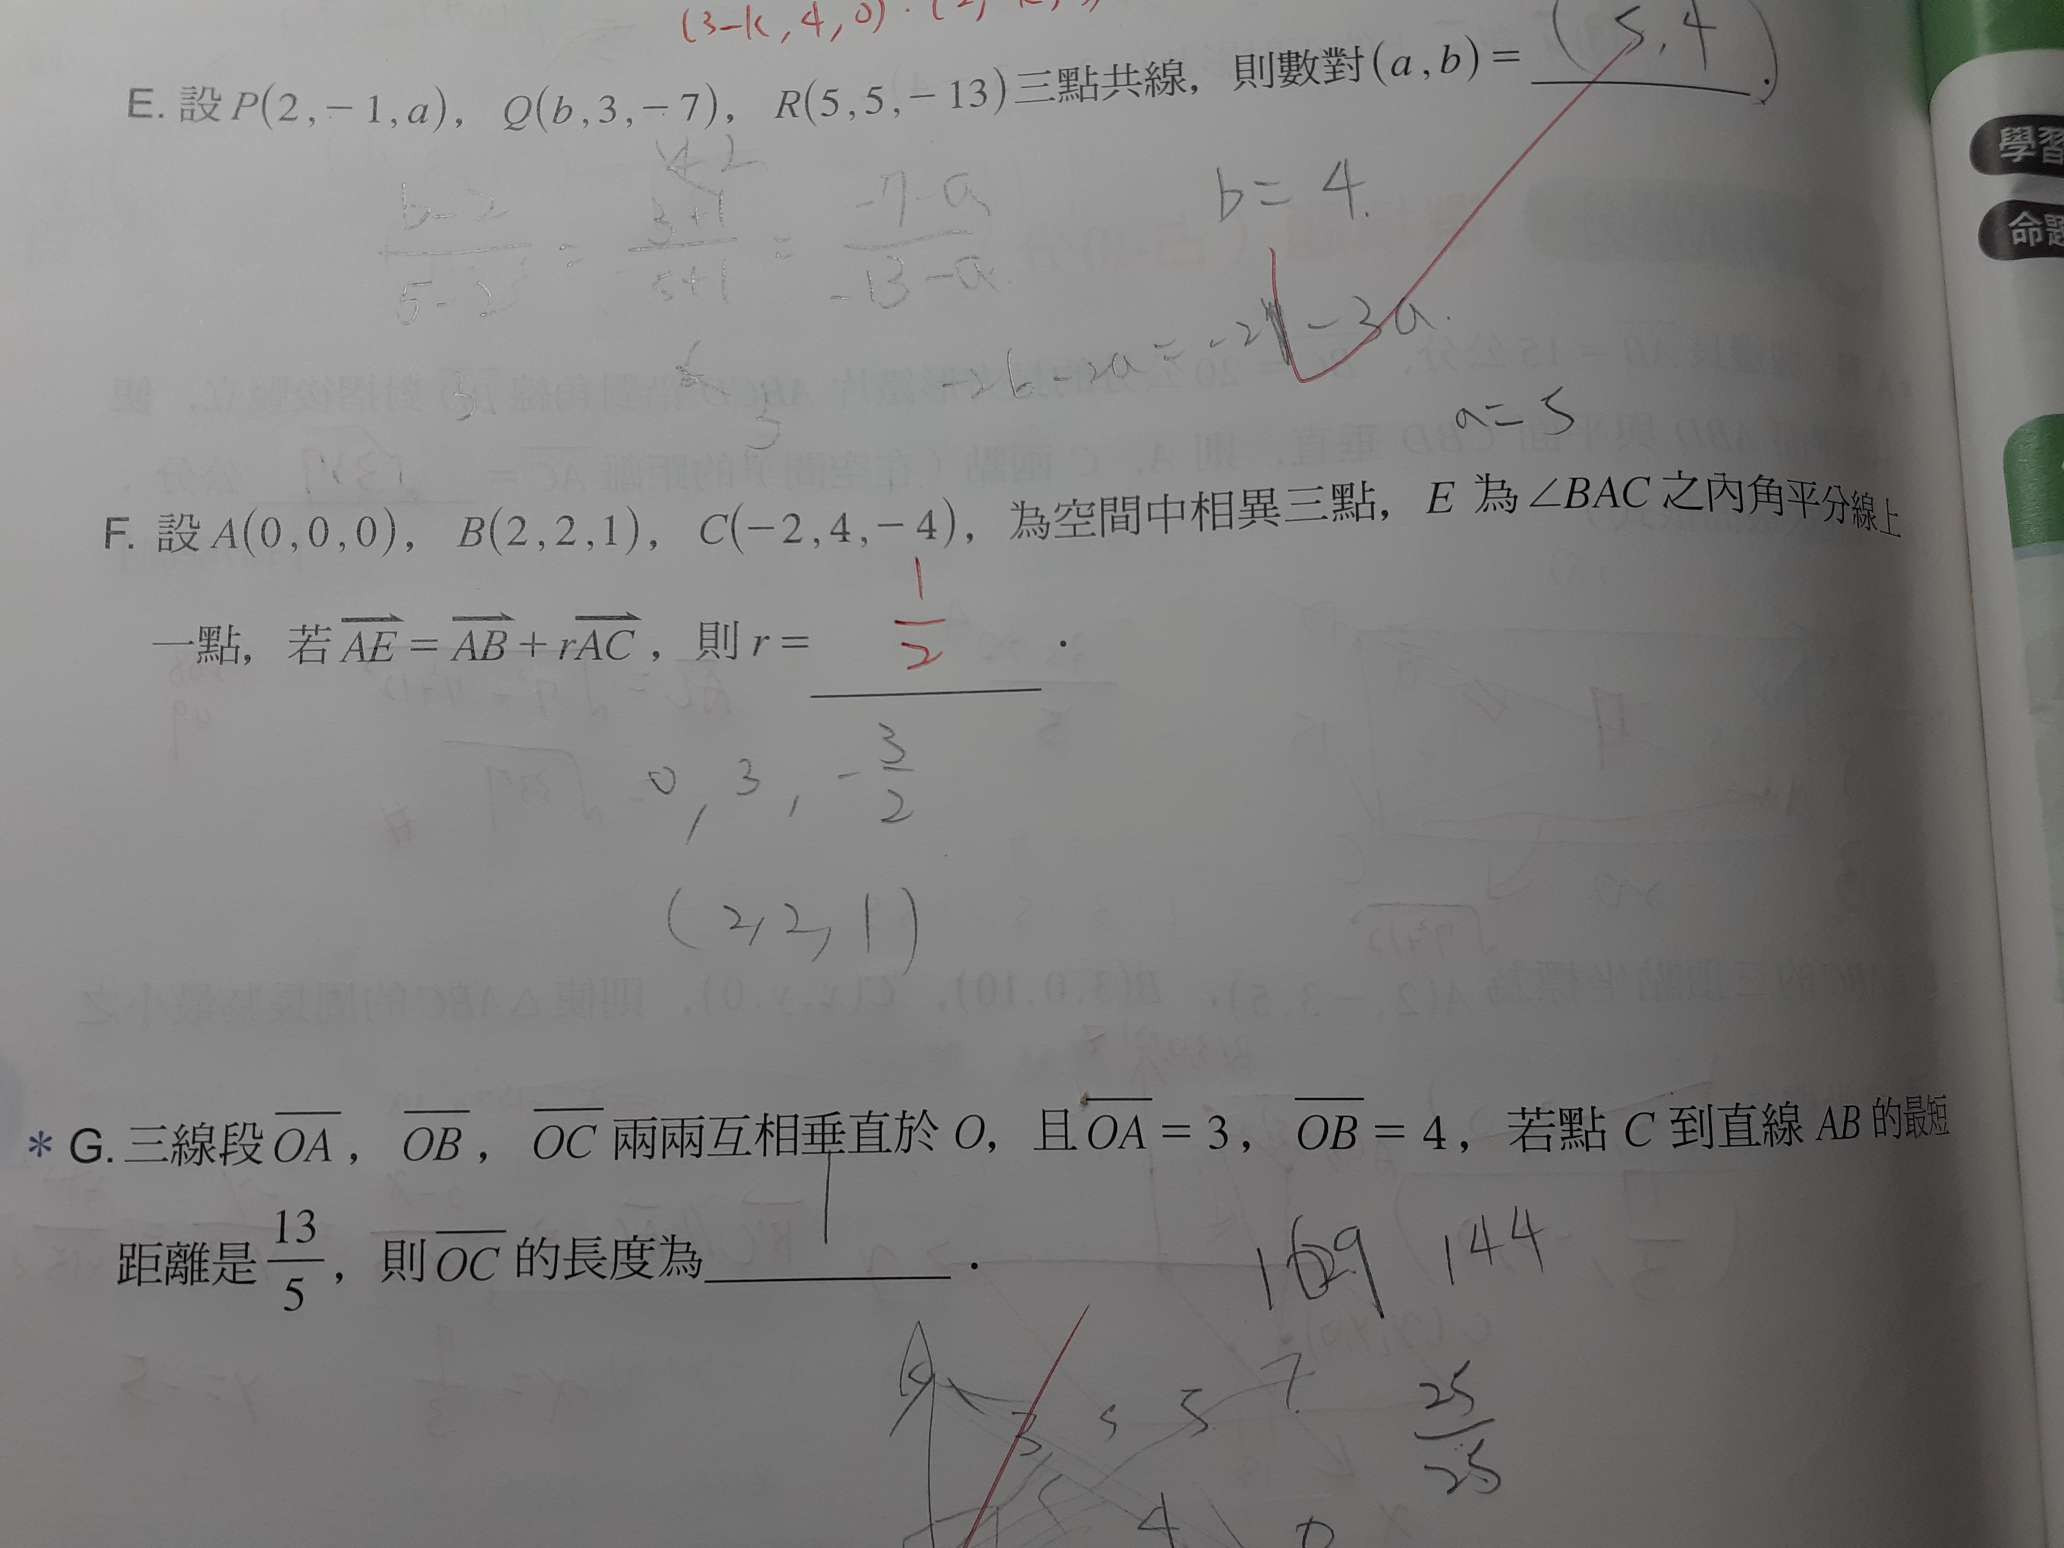 (3-k, 4, 0) · (2,
E. 設 P(2, -1, a), Q(b, 3, -7), R(5, 5, -13)三點共線, 則數對(a, b) = (5, 4).
學習
命題
b-2/5-2 = 3+1/5+1 = -7-a/-13-a
4 2
b = 4.
3
6 3
-26-2a = -21-3a.
a = 5
F. 設 A(0, 0, 0), B(2, 2, 1), C(-2, 4, -4), 為空間中相異三點, E 為∠BAC 之內角平分線上
一點, 若 AE = AB + rAC, 則 r = 1/2 .
0, 3, -3/2
(2, 2, 1)
* G. 三線段 OA, OB, OC 兩兩互相垂直於 O, 且 OA = 3, OB = 4, 若點 C 到直線 AB 的最短
距離是 13/5, 則 OC 的長度為 1 .
169 144
25/25
3
5
4